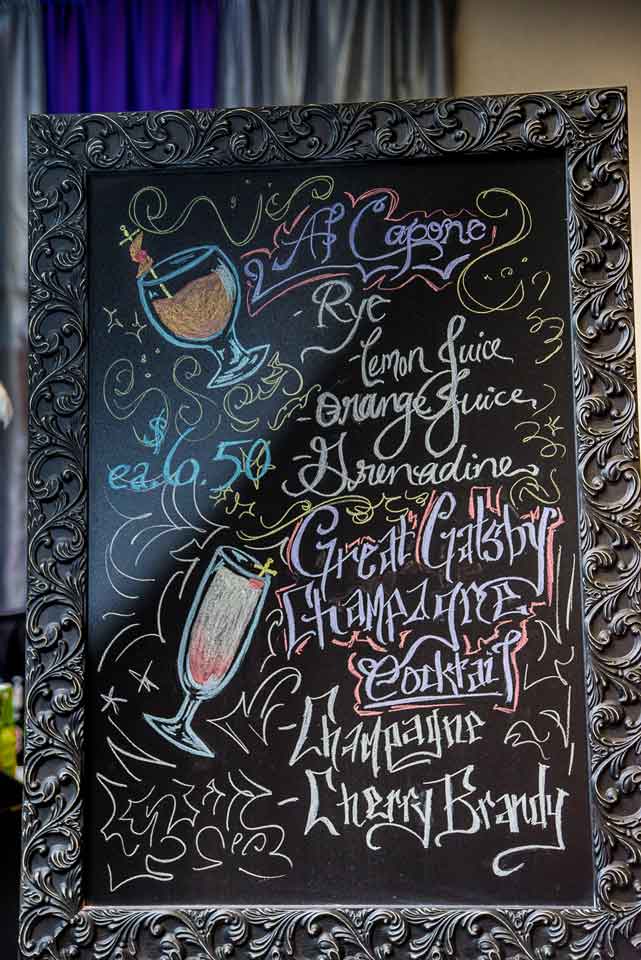 Al Capone
- Rye
- Lemon Juice
- Orange Juice
- Grenadine
$
ea 6.50
Great Gatsby
Champagne
Cocktail
- Champagne
- Cherry Brandy